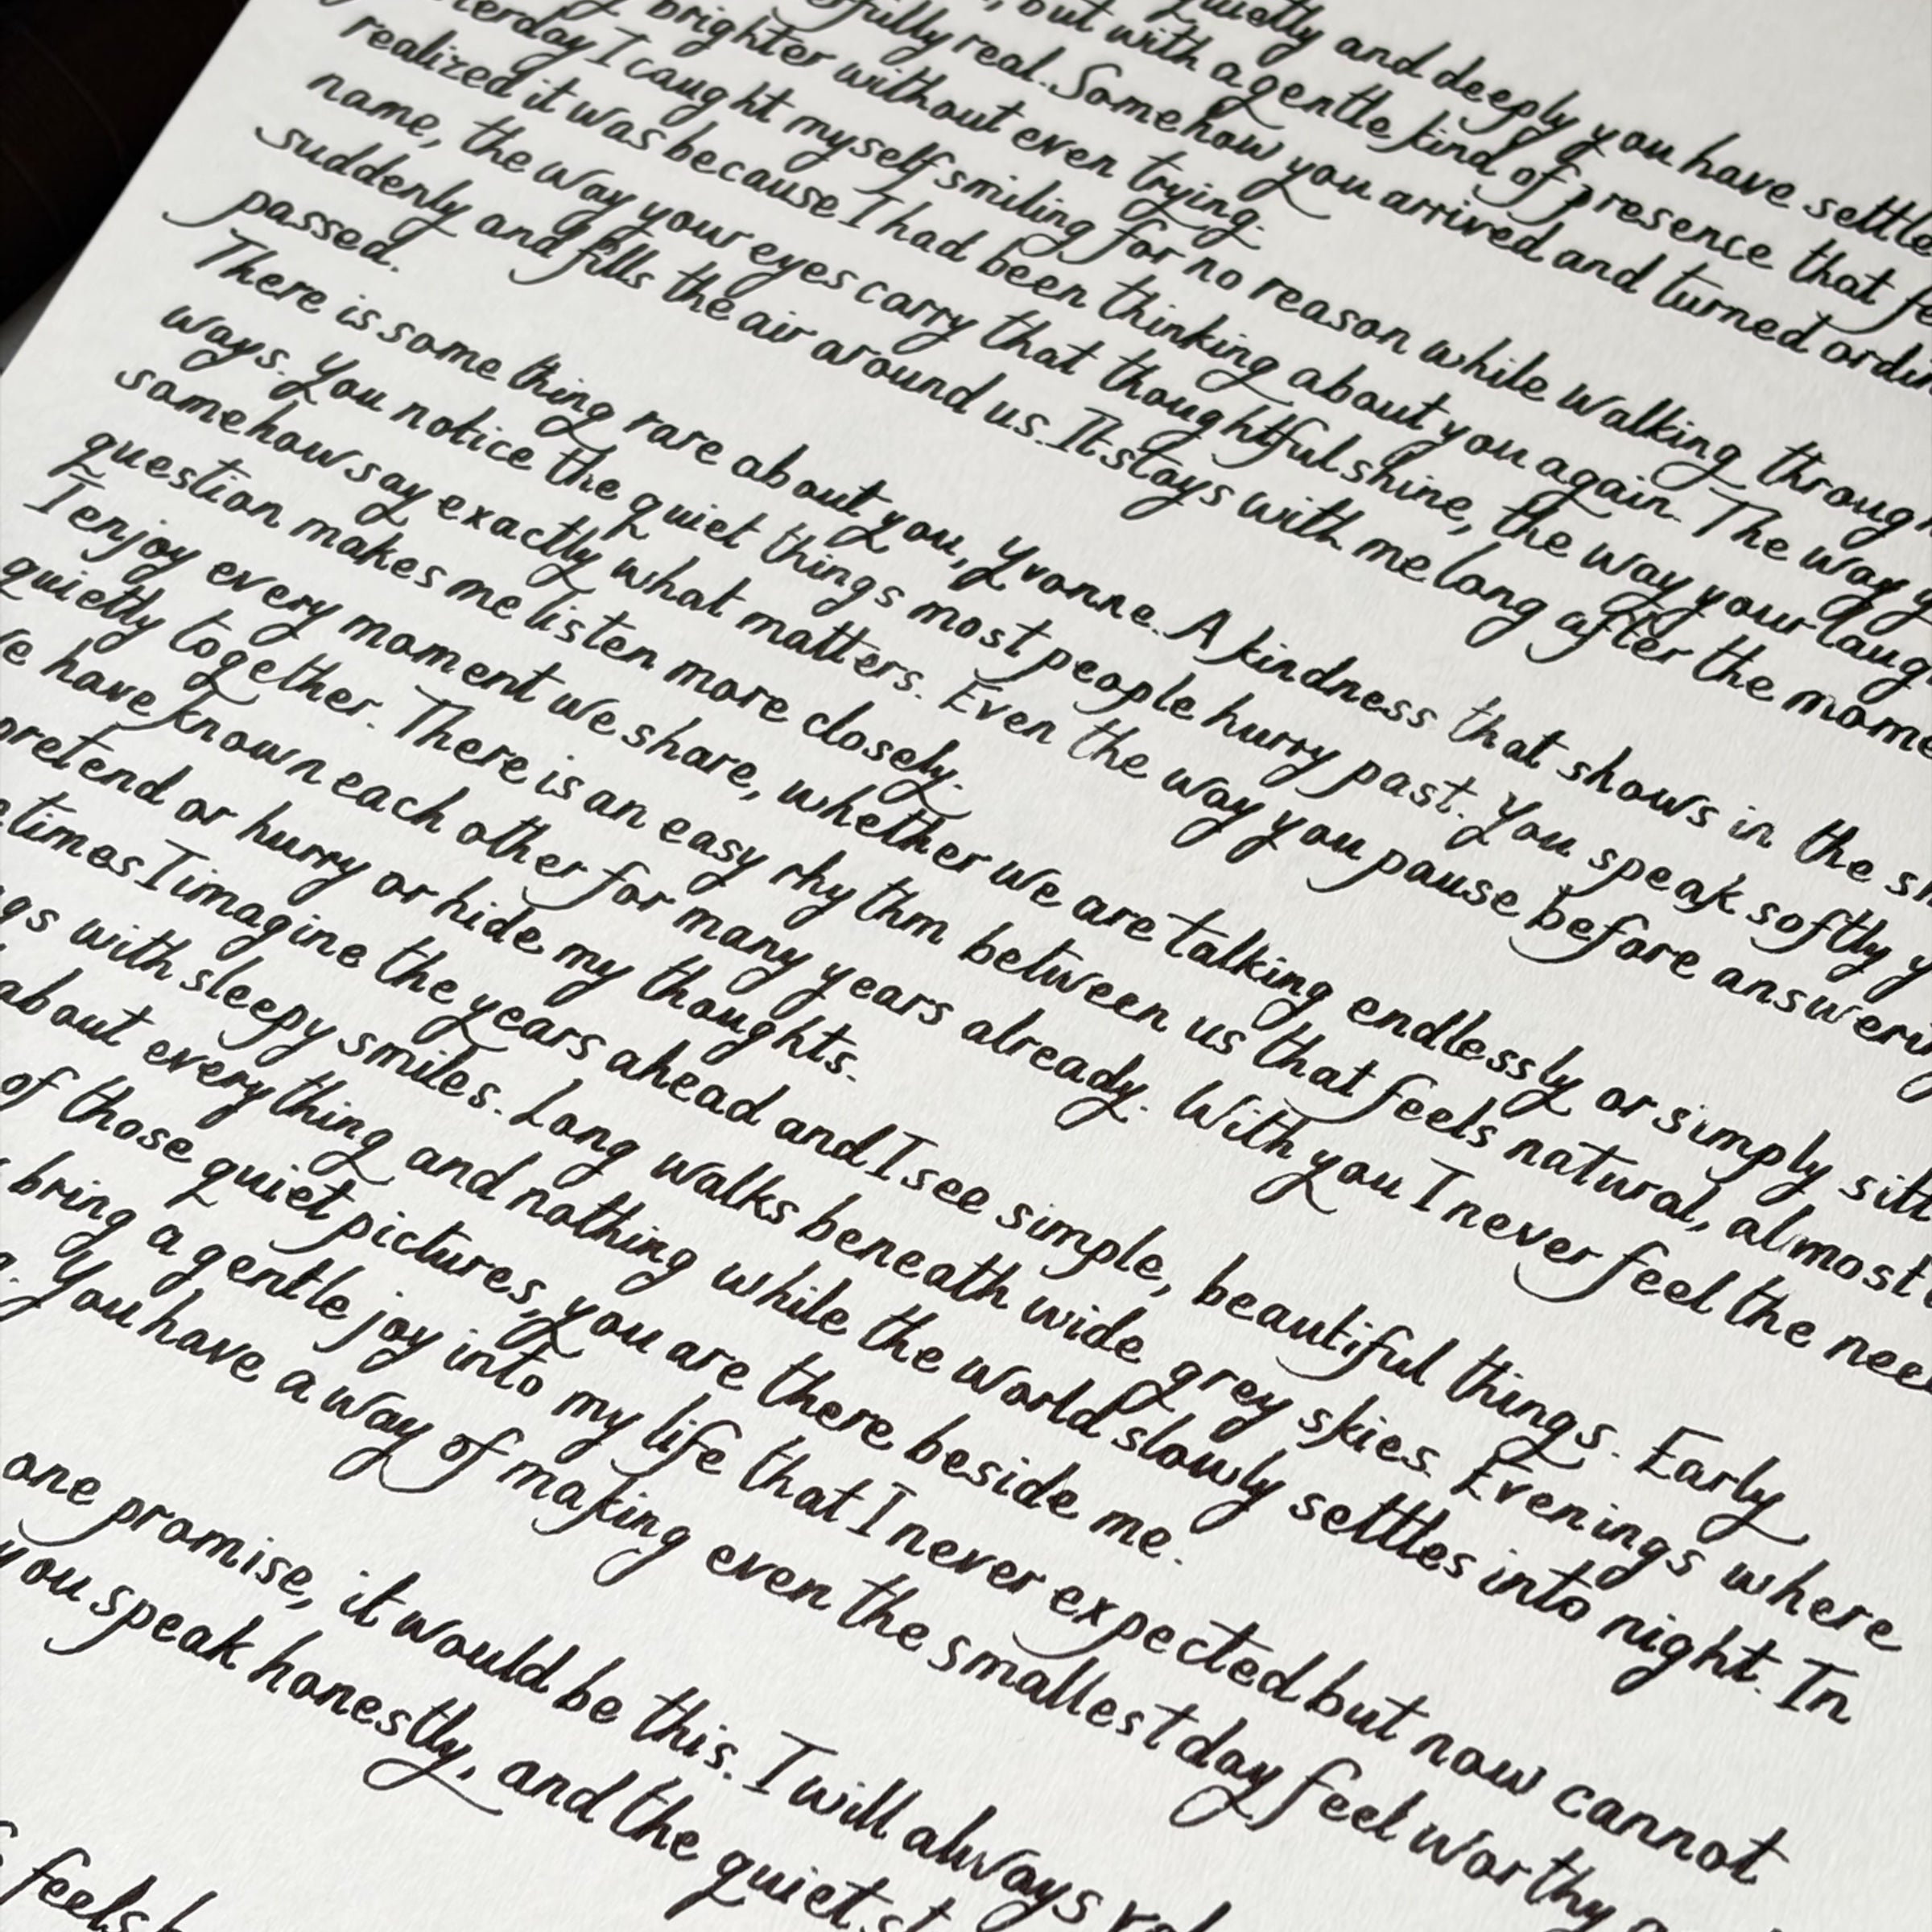 quietly and deeply you have settle
, but with a gentle kind of presence that fe
erfully real. Somehow you arrived and turned ordin
brighter without even trying.
terday I caught myself smiling for no reason while walking throug
realized it was because I had been thinking about you again. The way y
name, the way your eyes carry that thoughtful shine, the way your laug
suddenly and fills the air around us. It stays with me long after the mome
passed.
There is something rare about you, Yvonne. A kindness that shows in the s
ways. You notice the quiet things most people hurry past. You speak softly y
somehow say exactly what matters. Even the way you pause before answering
question makes me listen more closely.
I enjoy every moment we share, whether we are talking endlessly or simply sitt
quietly together. There is an easy rhythm between us that feels natural, almost
e have known each other for many years already. With you I never feel the nee
pretend or hurry or hide my thoughts.
etimes I imagine the years ahead and I see simple, beautiful things. Early
gs with sleepy smiles. Long walks beneath wide grey skies. Evenings where
about everything and nothing while the world slowly settles into night. In
of those quiet pictures, you are there beside me.
bring a gentle joy into my life that I never expected but now cannot
. You have a way of making even the smallest day feel worthy
one promise, it would be this. I will always
you speak honestly, and the quiet
feels